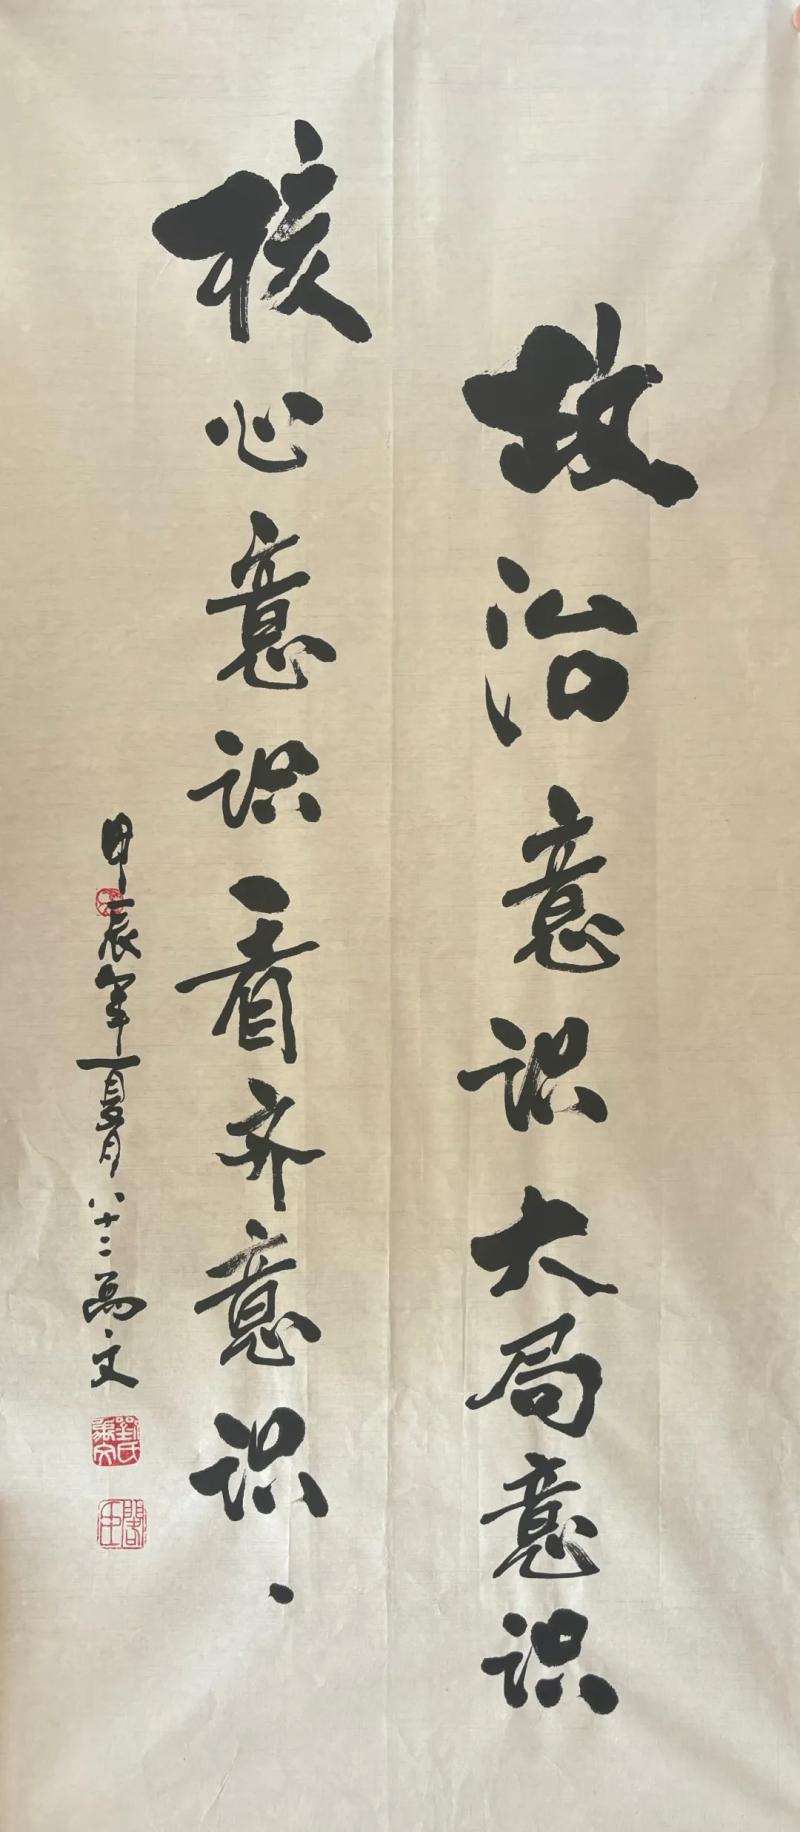 政治意识大局意识
核心意识看齐意识
甲辰年夏月八十二 禹文
劉氏禹文